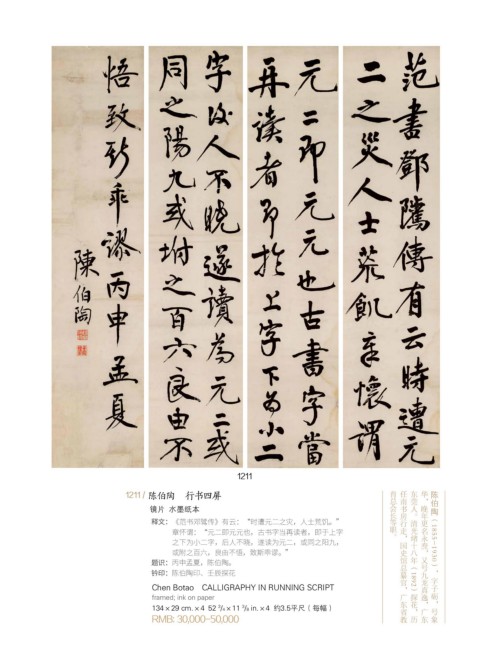 范書鄧隲傳有云時遭元
二之災人士荒飢章懷謂
元二即元元也古書字當
再讀者即於上字下為小二
字後人不曉遂讀為元二或
同之陽九或坿之百六良由不
悟致斯乖謬丙申孟夏
陳伯陶
1211
1211/ 陈伯陶 行书四屏
镜片 水墨纸本
释文：《范书邓骘传》有云：“时遭元二之灾，人士荒饥。”
章怀谓：“元二即元元也，古书字当再读者，即于上字
之下为小二字，后人不晓，遂读为元二，或同之阳九，
或附之百六，良由不悟，致斯乖谬。”
题识：丙申孟夏，陈伯陶。
钤印：陈伯陶印、壬辰探花
Chen Botao CALLIGRAPHY IN RUNNING SCRIPT
framed; ink on paper
134 × 29 cm. × 4 52 3/4 × 11 3/8 in. × 4 约3.5平尺（每幅）
RMB: 30,000-50,000
陈伯陶（1855-1930），字子砺，号象
华，晚年更名永焘，又号九龙真逸，广东
东莞人。清光绪十八年（1892）探花，历
任南书房行走，国史馆总纂官，广东省教
育总会长等职。